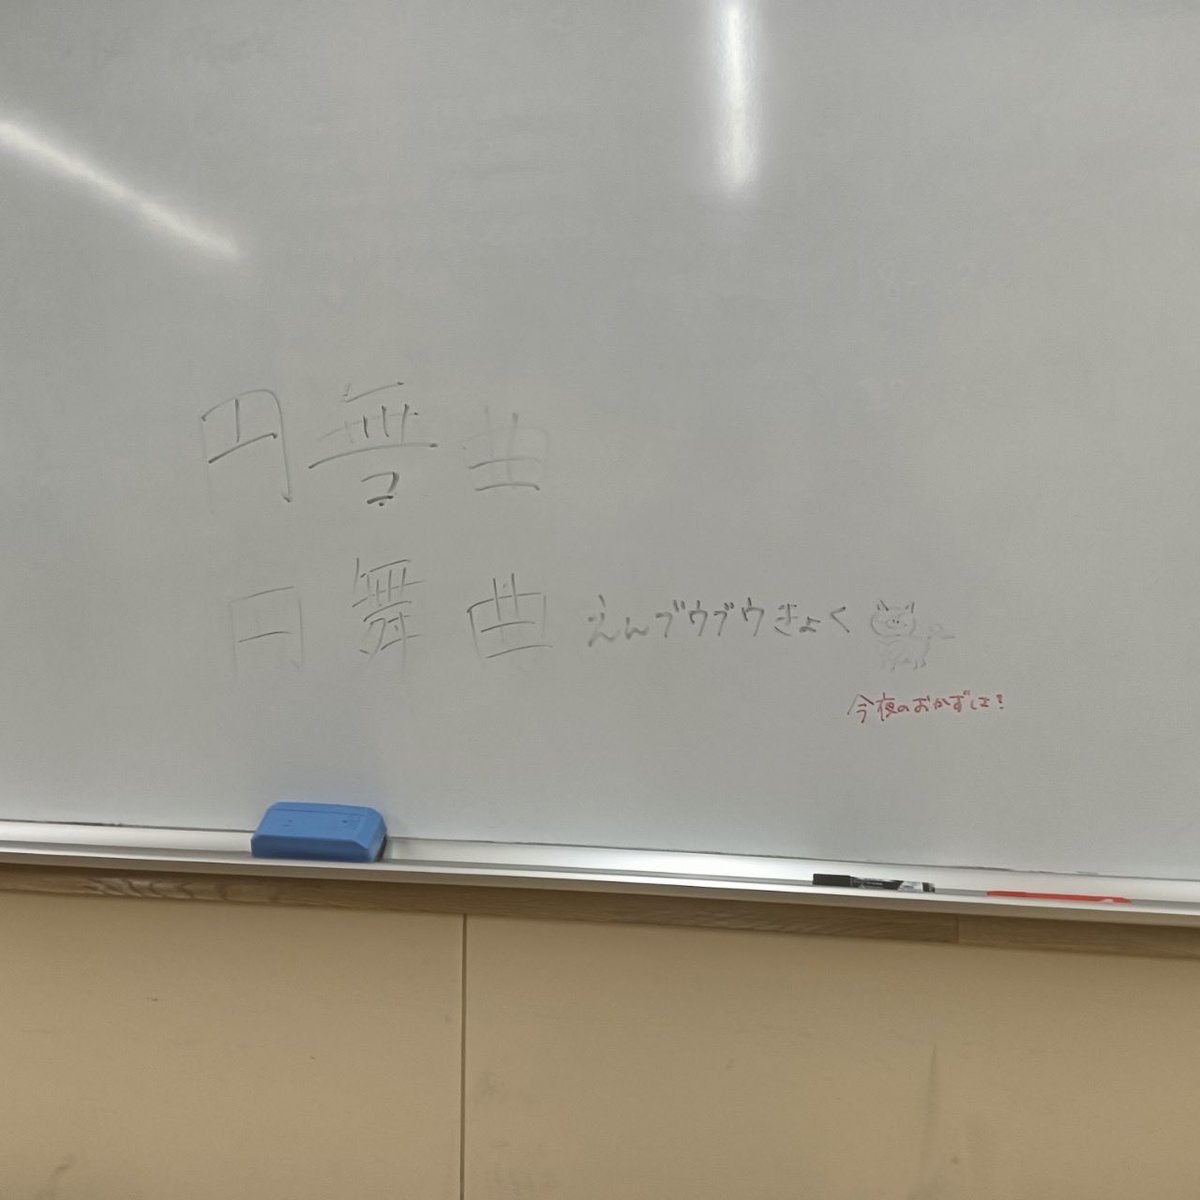 円無?曲
円舞曲 えんブウブウきょく
今夜のおかずは?